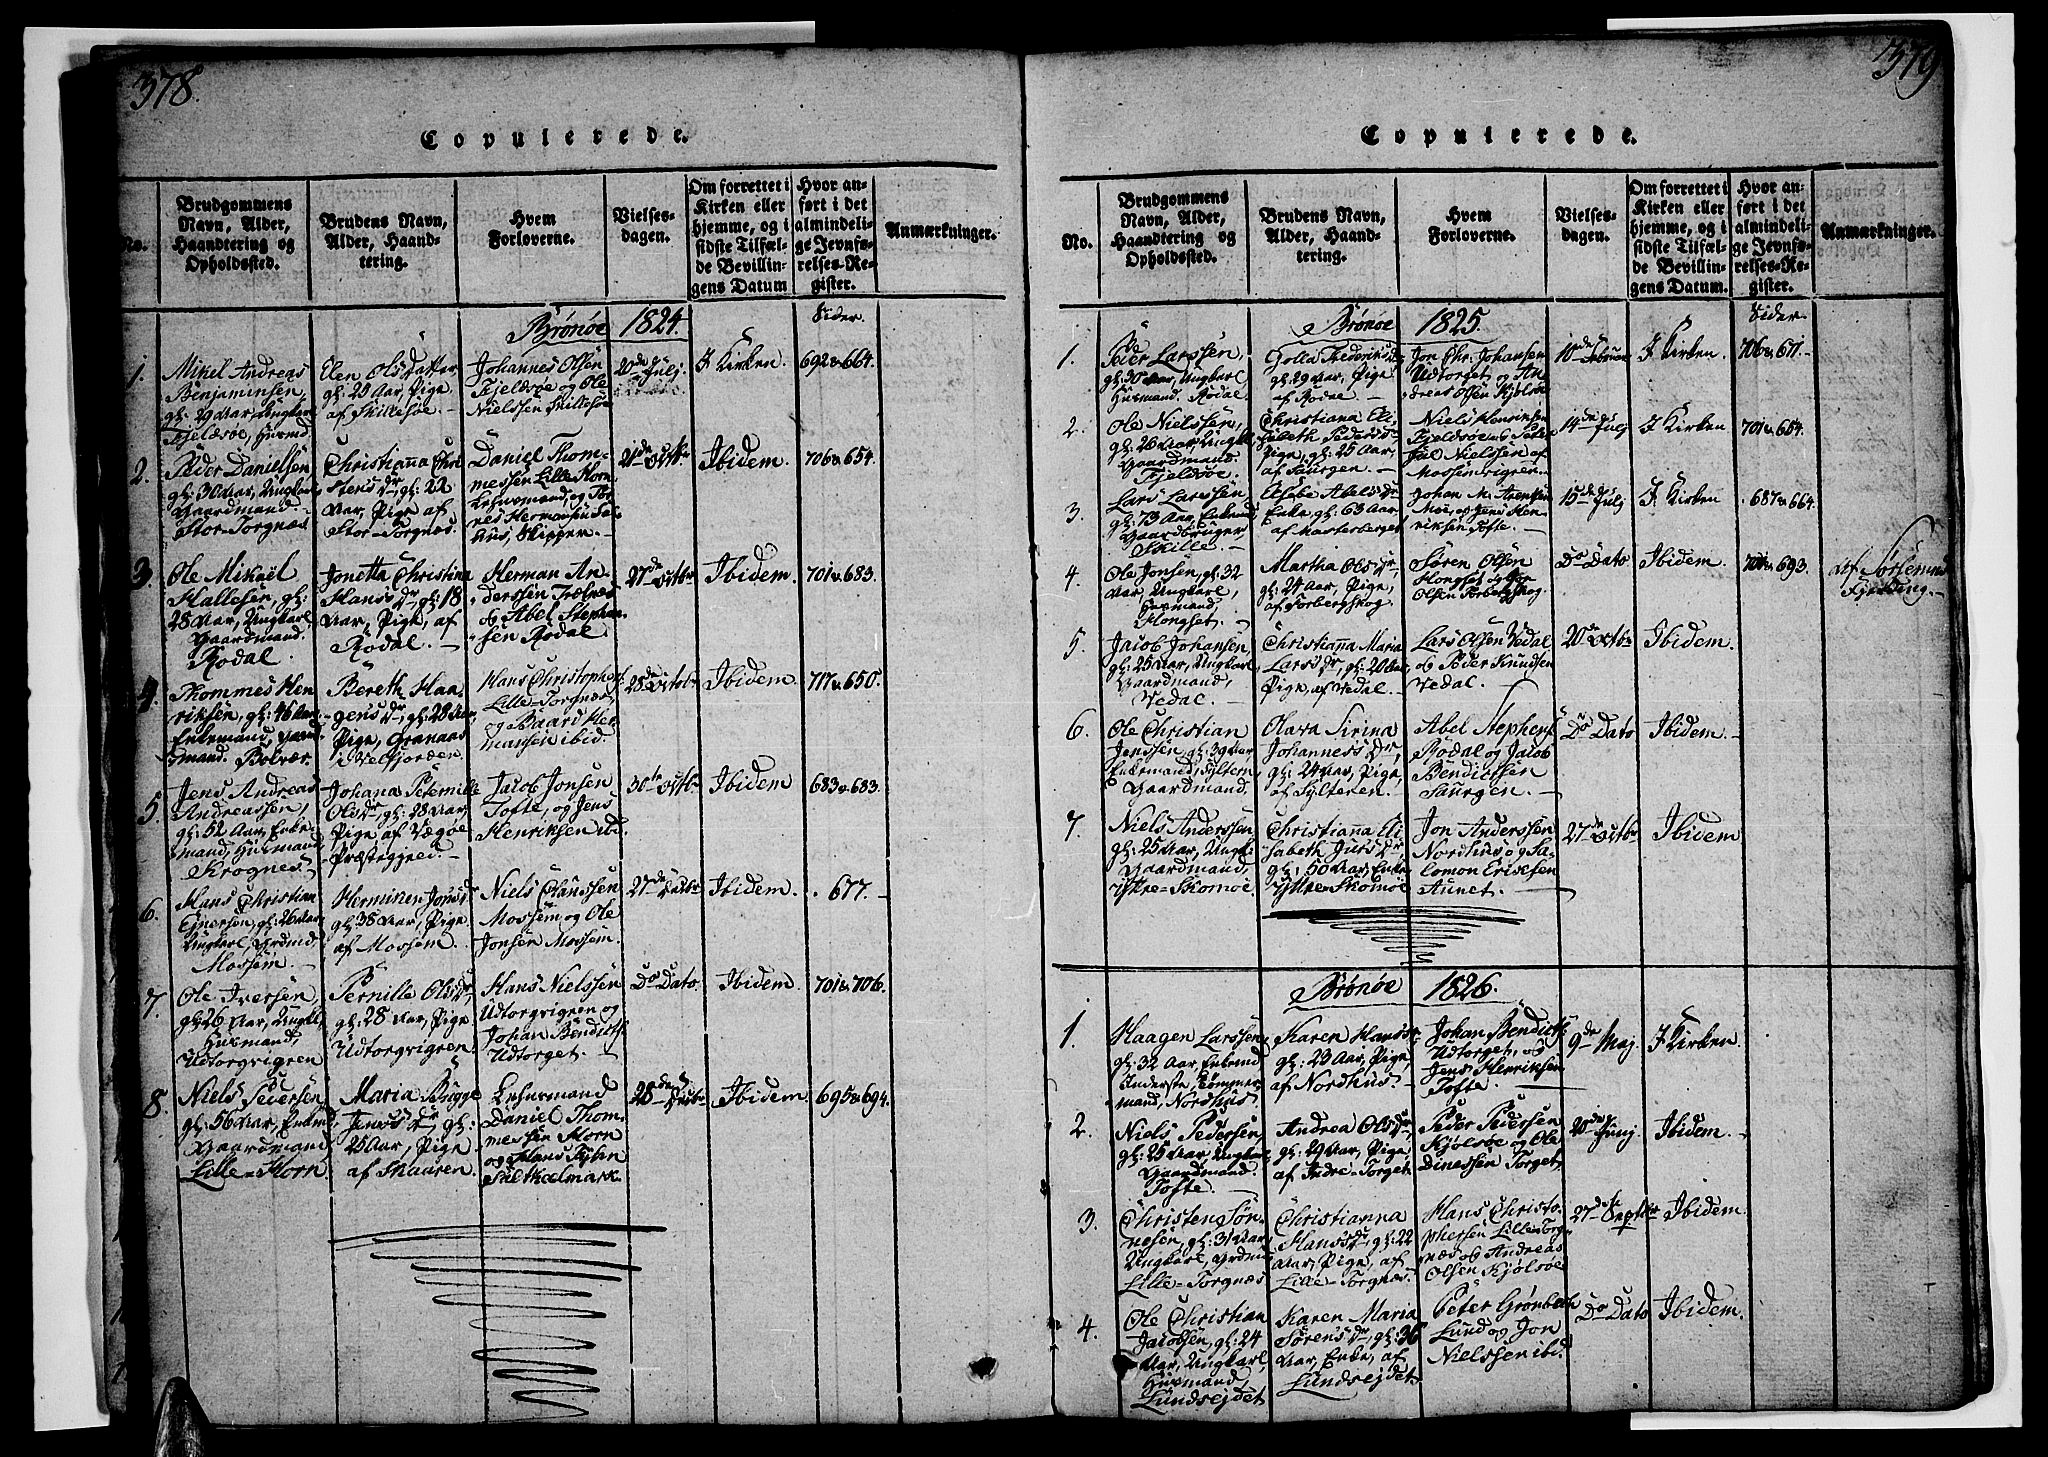 378.
Copulerede.
No.
Brudgommens
Navn, Alder,
Haandtering og
Opholdssted.
Brudens Navn,
Alder, Haand-
tering.
Hvem
Forloverne.
Vielses-
dagen.
Om forrettet i
Kirken eller
hjemme, og i
sidste Tilfæl-
de Bevillin-
gens Datum
Hvor an-
ført i det
almindeli-
ge Jevnfø-
relses-Re-
gister.
Anmærkninger.
Brønøe 1824.
Sider.
1.
Mikel Andreas
Benjaminsen,
gl: 29 Aar Ungkarl
Fjeldsøe, Huusmd.
Elen Olsdatter,
gl: 23 Aar, Pige
af Skillesøe.
Johannes Olsen
Fjeldsøe og Ole
Nielssen Skillesøe
20de Julj.
I Kirken.
692 & 664.
2.
Peder Danielsen
gl: 30 Aar, Ungkarl
Gaardmand.
Stor-Torgnæs.
Christianna Chri
stens Dr., gl: 22
Aar, Pige af
Stor-Torgnæs.
Daniel Thom-
messen Lille Horn
Lehnsmand, og Tør-
nes Hermansen Sal-
hus, Skipper.
21de Octbr
Ibidem.
706 & 654.
3.
Ole Mikael
Hallesen, gl:
28 Aar, Ungkarl
Gaardmand.
Rodal.
Jonetta Christina
Hans Dr., gl: 18
Aar, Pige, af
Rodal.
Herman An-
derssen Trælnæs
og Abel Stephan-
sen Rodal.
27de Octbr
Ibidem.
701 & 683.
4.
Thommes Hen
riksen, gl: 46 Aar
Enkemand, Gaard
mand. Bolvær.
Bereth Haa-
gens Dr., gl: 28 Aar,
Pige, Granaas
i Velfjorden
Hans Christophers.
Lille-Torgnæs
og Baard Her-
mansen ibid.
28de Octbr
Ibidem.
717 & 650.
5.
Jens Andreas
Andreassen,
gl: 52 Aar, Enke-
mand, Huusmand
Krognes.
Johana Petemille
Ols Dr., gl: 28 Aar,
Pige af Vægøe
Præstegjeld.
Jacob Jonsen
Tofte, og Jens
Henriksen ibd.
30te Octbr
Ibidem
683 & 683.
6.
Hans Christian
Ejnersen, gl: 26 Aar
Ungkarl, Grdmd,
Mossem.
Herminen Jons Dr
gl: 38 Aar, Pige
af Mossem.
Niels Clausen
Mossem og Ole
Jonsen Mossem.
27de Octbr
Ibidem.
677.
7.
Ole Iversen,
gl: 26 Aar, Ungkl,
Huusmand,
Udtorgvigren
Pernille Ols Dr,
gl: 28 Aar, Pige
Udtorgvigren.
Hans Nielssen
Udtorgvigren og
Johan Bendicts.
Udtorget.
Do Dato.
Ibidem
701 & 706.
8.
Niels Pedersen,
gl: 56 Aar, Enkemd
Gaardmand
Lille-Horn.
Maria Bugge
Jens Dr, gl:
25 Aar, Pige
af Skaaren.
Lehnsmand
Daniel Thom-
messen Horn
og Hans
28de
Ibidem.
695 & 694.
379
Copulerede.
No.
Brudgommens
Navn, Alder,
Haandtering og
Opholdssted.
Brudens Navn,
Alder, Haand-
tering.
Hvem
Forloverne.
Vielses-
dagen.
Om forrettet i
Kirken eller
hjemme, og i
sidste Tilfæl-
de Bevillin-
gens Datum.
Hvor an-
ført i det
almindeli-
ge Jevnfø-
relses-Re-
gister.
Anmærkninger.
Brønøe 1825.
Sider.
1.
Peder Larssen,
gl: 30 Aar, Ungkarl,
Huusmand. Rodal.
Golla Frederiks Dr
gl: 29 Aar, Pige
af Rodal.
Jon Chr. Johansen
Udtorget og An-
dreas Olsen Kjølsøe
10de
I Kirken.
706 & 671.
2.
Ole Nielssen,
gl: 26 Aar, Ungkl,
Gaardmand.
Fjeldsøe.
Christiana Eli
sabeth Peders Dr
Pige, gl: 25 Aar,
af Saurgen.
Niels Henriksen
Fjeldsøe og Peder
Jul Nielssen af
Mossemvigren.
14de Julj
I Kirken
701 & 664.
3.
Lars Larssen
gl: 73 Aar, Enkemd
Gaardbruger
Skille.
Elsebe Abels Dr
Enke, gl: 63 Aar,
af
Johan M. Arentsen
Moe, og Jens Hen-
riksen Tofte.
15de Julj
I Kirken
687 & 664.
4
Ole Jonsen, gl: 32
Aar, Ungkarl,
Huusmand,
Hongset.
Martha Ols Dr,
gl: 24 Aar, Pige,
af Torbergskog.
Søren Olsen
Hongset og Jon
Olsen Torbergskog.
Do Dato
Ibidem.
701 & 693.
af Sørlemns
Fjerding.
5.
Jacob Johansen,
gl: 25 Aar, Ungkarl,
Gaardmand,
Vedal.
Christianna Maria
Lars Dr, gl: 20 Aar
Pige, af Vedal.
Lars Olsen Vedal
og Peder Knudsen
Vedal.
20de Octbr
Ibidem.
6.
Ole Christian
Jenssen, gl: 39 Aar,
Enkemand, Sylteren
Gaardmand.
Olava Sirina
Johanness Dr,
gl: 24 Aar, Pige,
af Sylteren.
Abel Stephens.
Rødal og Jacob
Bendictsen
Saurgen.
Do Dato
Ibidem.
7.
Niels Anderssen,
gl: 25 Aar, Ungkl.
Gaardmand,
Yttre-Skomoe.
Christianna Eli
sabeth Jurs Dr,
gl: 50 Aar, Enke,
Yttre-Skomoe
Jon Anderssen
Nordhus og Sa-
lomon Eriksen
Aunet.
27de Octbr
Ibidem
Brønøe 1826.
1.
Haagen Larssen,
gl: 32 Aar, Enkemd
Inderste, Tømmer
mand, Nordhus
Karen Hans Dr
gl: 23 Aar, Pige,
af Nordhus
Johan Bendicts.
Udtorget, og
Jens Henriksen
Tofte.
9de Maj.
I Kirken.
2.
Niels Pedersen,
gl: 25 Aar, Ungkarl
Gaardmand.
Tofte.
Andrea Ols Dr,
gl: 29 Aar, Pige,
af Indre-Torget
Peder Pedersen
Kjølsøe og Ole
Dinessen Torget,
20de Junj.
Ibidem.
3.
Christen Sør-
nesen, gl: 31 Aar,
Ungkarl, Grdmd
Lille-Torgnæs
Christianna
Hans Dr, gl: 22
Aar, Pige, af
Lille-Torgnæs.
Hans Christo-
phersen Lille-Torg-
næs og Andreas
Olsen Kjølsøe
27de Septbr
Ibidem.
4.
Ole Christian
Jacobsen, gl: 24
Aar, Ungkarl,
Huusmand,
Lundsejdet
Karen Maria
Sørens Dr, gl: 36
Aar, Enke, af
Lundsejdet
Peter Grønbech
Lund og Jon
Nielssen ibd.
Do Dato
Ibidem.